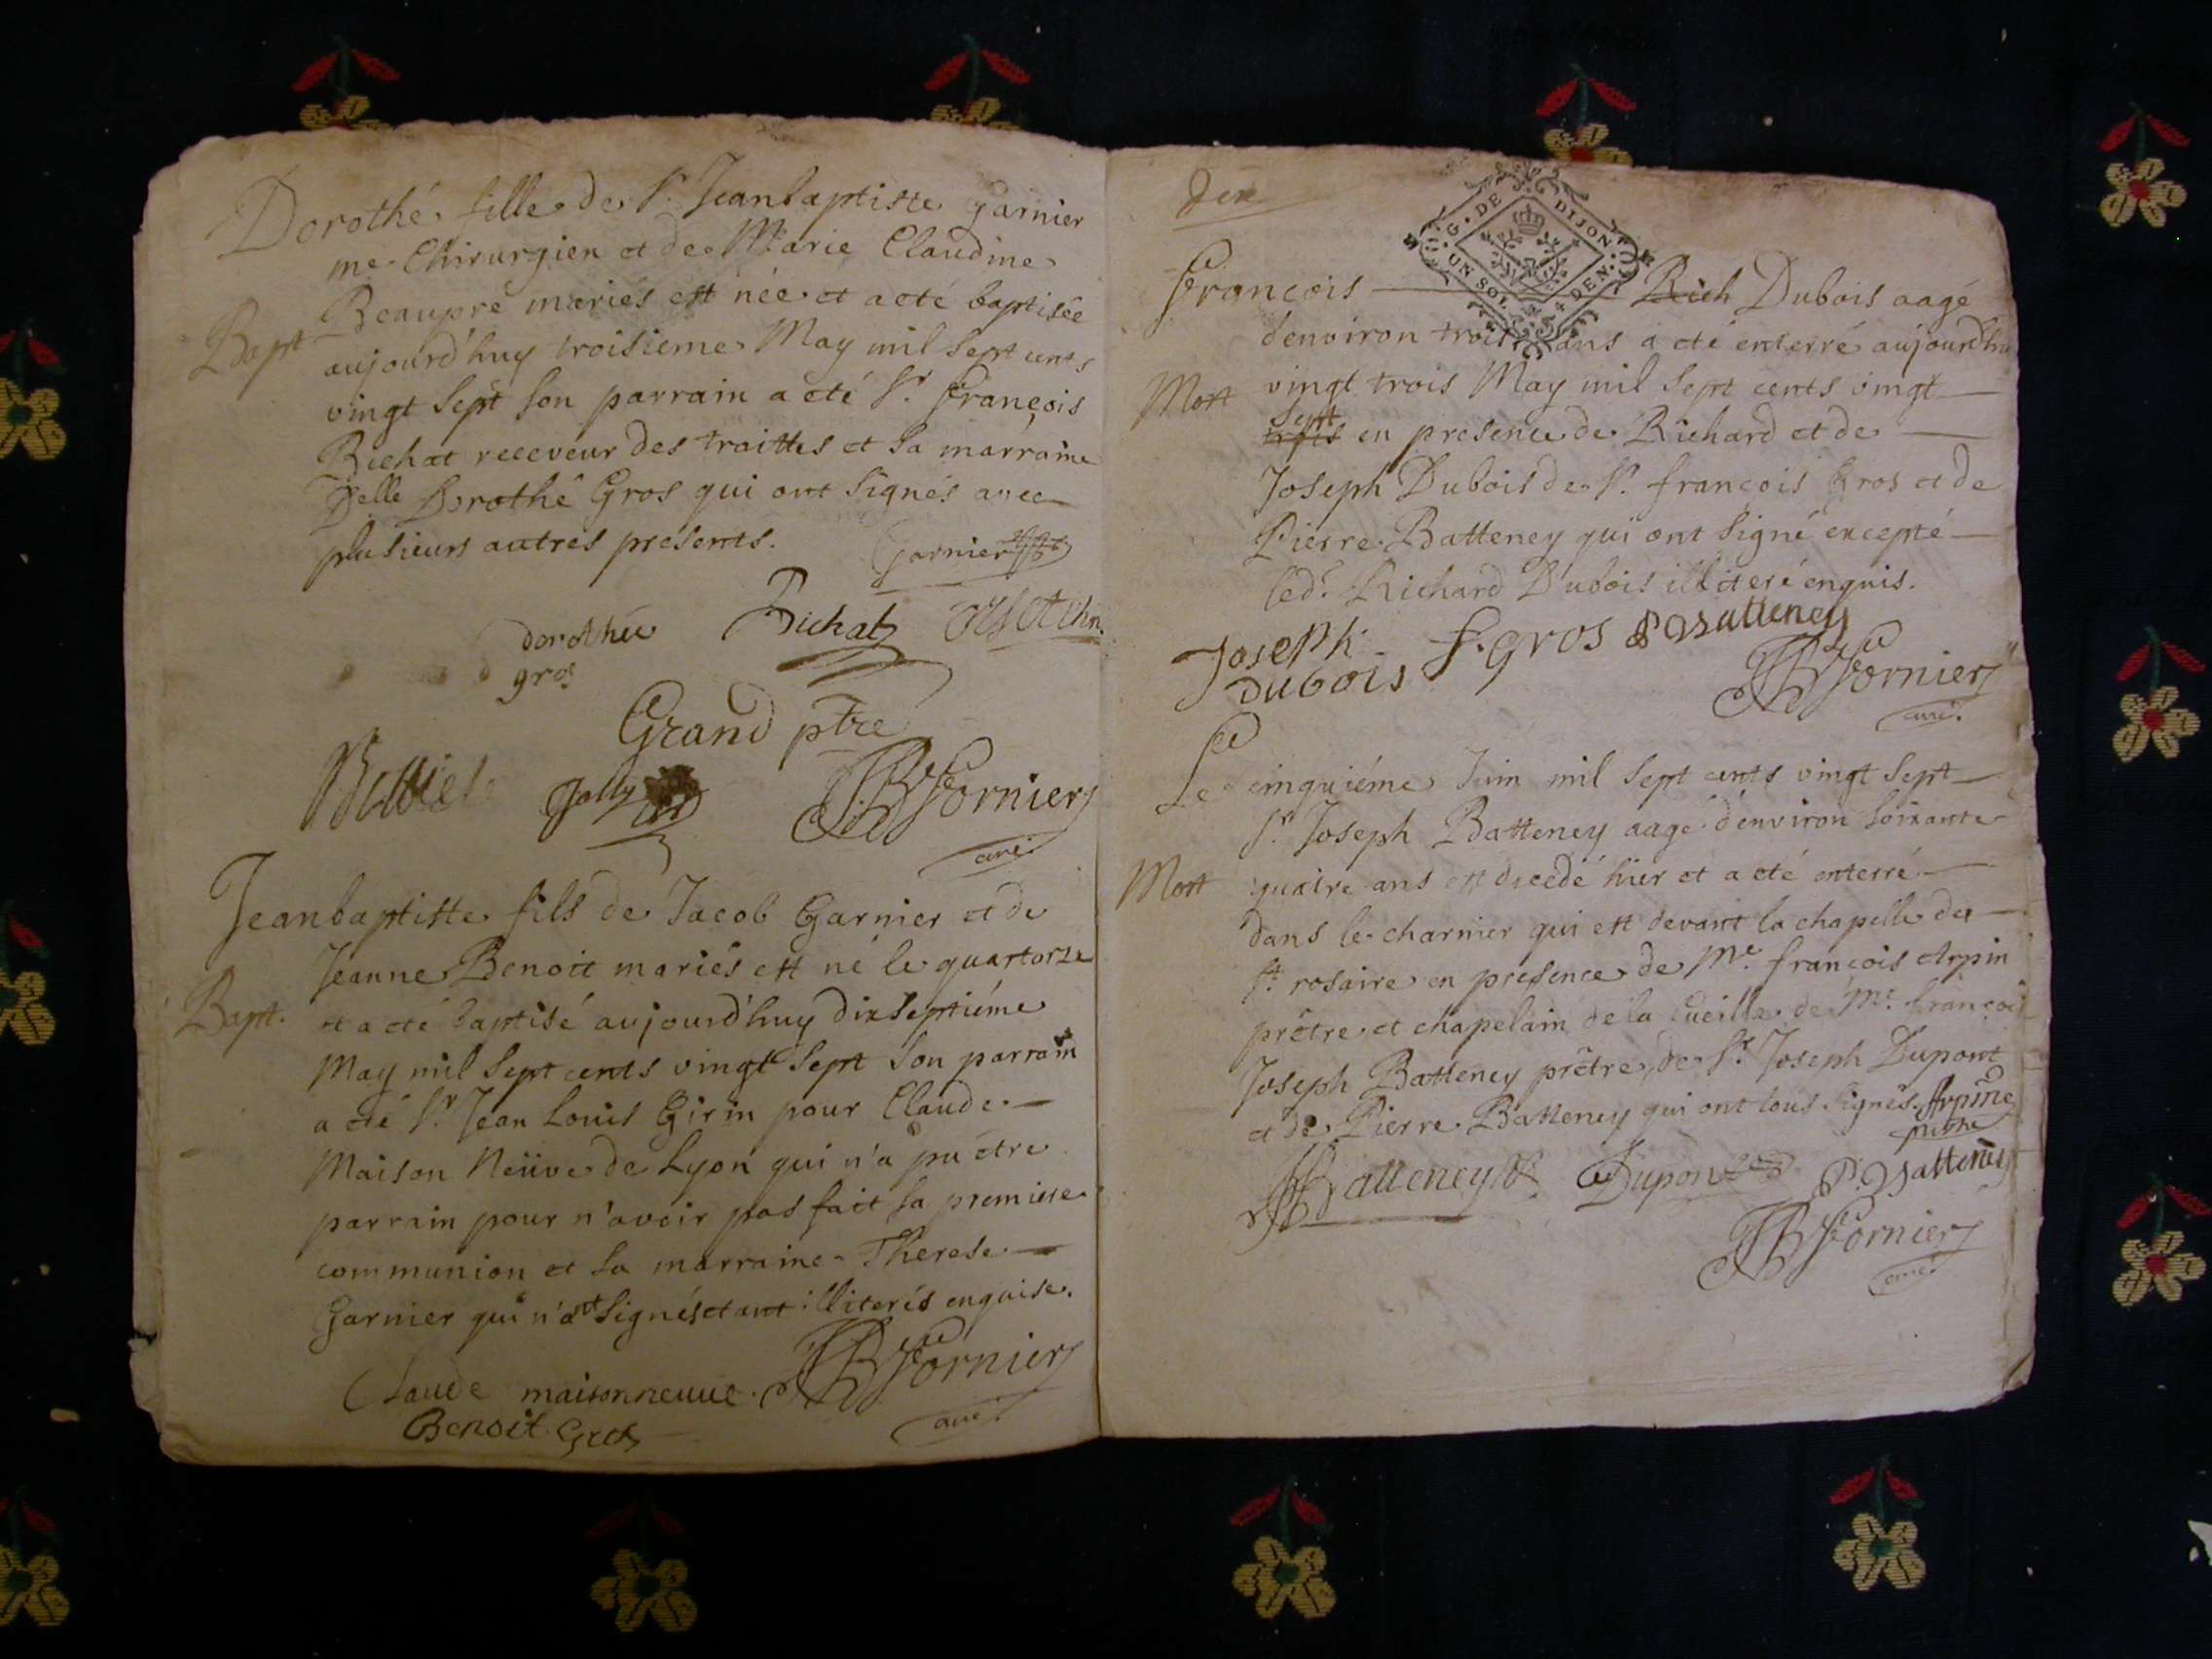 Dorothé fille de Sr. Jeanbaptiste Garnier
me. Chirurgien et de Marie Claudine
Beaupré mariés est née et a eté baptisée
Bapt
aujourd'huy troisieme May mil sept cents
vingt sept son parrain a eté Sr. François
Bichat receveur des traittes et sa marraine
Delle Dorothé Gros qui ont signés avec
plusieurs autres présents.
Garnier
dorothée
gros
Bichat
Grand ptre
Jolly
JB Fornier
curé.
Jeanbaptiste fils de Jacob Garnier et de
Jeanne Benoit mariés est né le quartorze
Bapt.
et a eté baptisé aujourd'huy dix septiéme
May mil sept cents vingt sept son parrain
a eté Sr. Jean Louis Girin pour Claude
Maison Neüve de Lyon qui n'a pu étre
parrain pour n'avoir pas fait sa premiere
communion et sa marraine Therese
Garnier qui n'ont signés etant illiterés enquise.
Claude maisonneuue.
JB Fornier
curé.
Benoit Gros
dix
G. DE DIJON
UN SOL DEN.
François Rich Dubois aagé
d'environ trois ans a eté enterré aujourd'hu
Mort
vingt trois May mil sept cents vingt
sept
trois en presence de Richard et de
Joseph Dubois de Sr. françois Gros et de
Pierre Batteney qui ont signé excepté
led. Richard Dubois illiteré enquis.
Joseph
Dubois
f. gros
P Batteney
JB Fornier
curé.
Le cinquiéme Juin mil sept cents vingt sept
Sr. Joseph Batteney aagé d'environ soixante
Mort
quatre ans est decedé hier et a eté enterré
dans le charnier qui est devant la chapelle du
St. rosaire en presence de Me. françois Arpin
prêtre et chapelain de la Cueille de Me. François
Joseph Batteney prêtre, de Sr. Joseph Dupont
et de Pierre Batteney qui ont tous signés.
Arpine
prestre
Batteney
Dupont
P. Batteney
JB Fornier
curé.